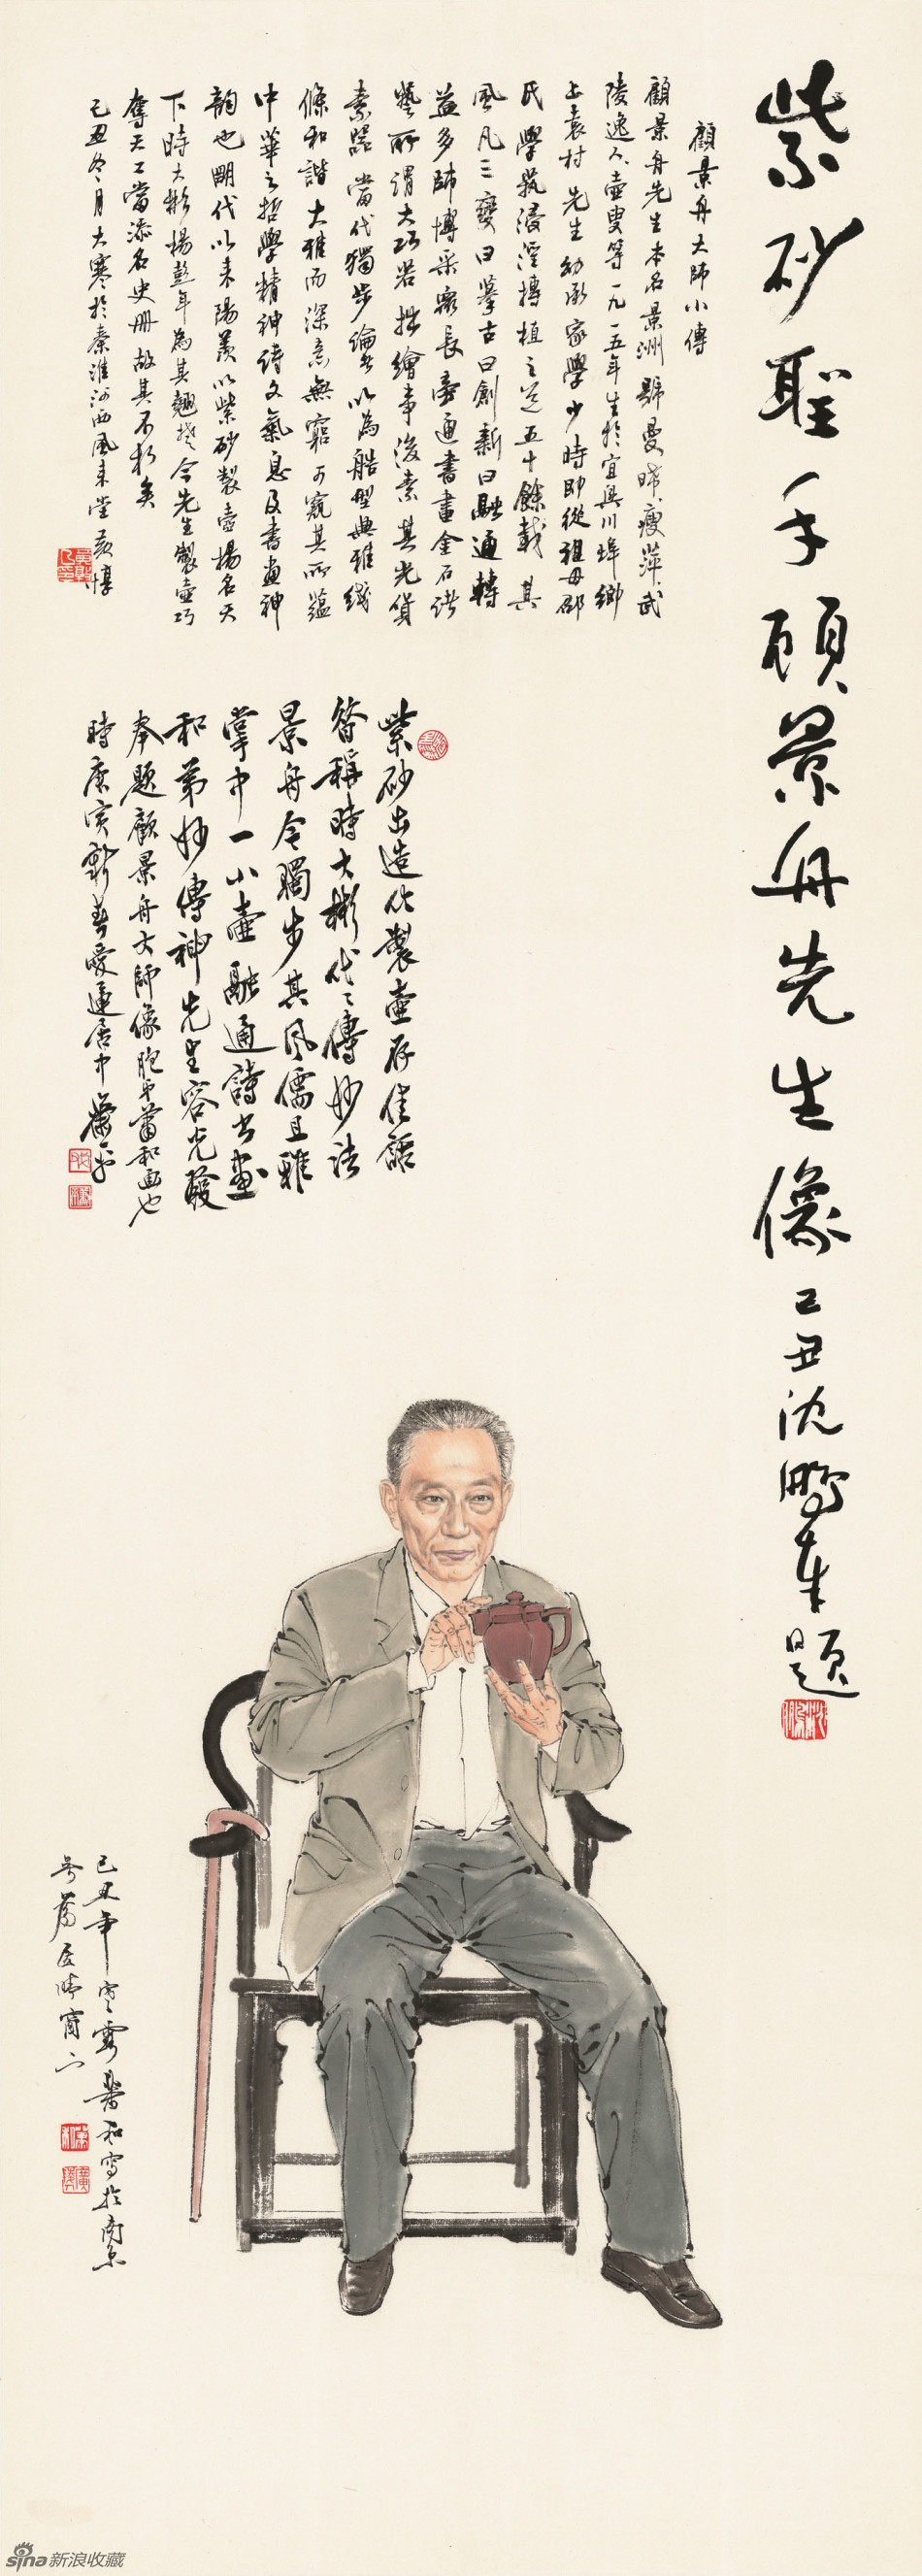 紫砂聖手顧景舟先生像己丑沈鵬奉題
顧景舟大師小傳
顧景舟先生本名景洲號曼晞瘦萍武
陵逸人壺叟等一九一五年生於宜興川埠鄉
上袁村先生幼承家學少時即從祖母邵
氏學藝浸淫摶植之道五十餘載其
風凡三變曰摹古曰創新曰融通轉
益多師博采眾長旁通書畫金石諸
藝所謂大巧若拙繪事後素其光貨
素器當代獨步論者以為船型典雅綫
條和諧大雅而深意無窮可窺其所蘊
中華之哲學精神詩文氣息及書畫神
韵也明代以來陽羨以紫砂製壺揚名天
下時大彬楊彭年為其翹楚今先生製壺巧
奪天工當添名史冊故其不朽矣
己丑冬月大寒於秦淮河西風來堂黃惇
紫砂出造化製壺存佳話
咎稱時大彬代代傳妙法
景舟令獨步其風儒且雅
掌中一小壺融通詩書畫
和弟妙傳神先生容光發
奉題顧景舟大師像胞弟蕭和画也
時庚寅新春愛蓮居中蕭平
己丑年寒露蕭和寫於南京
舊居晴窗下
sina新浪收藏